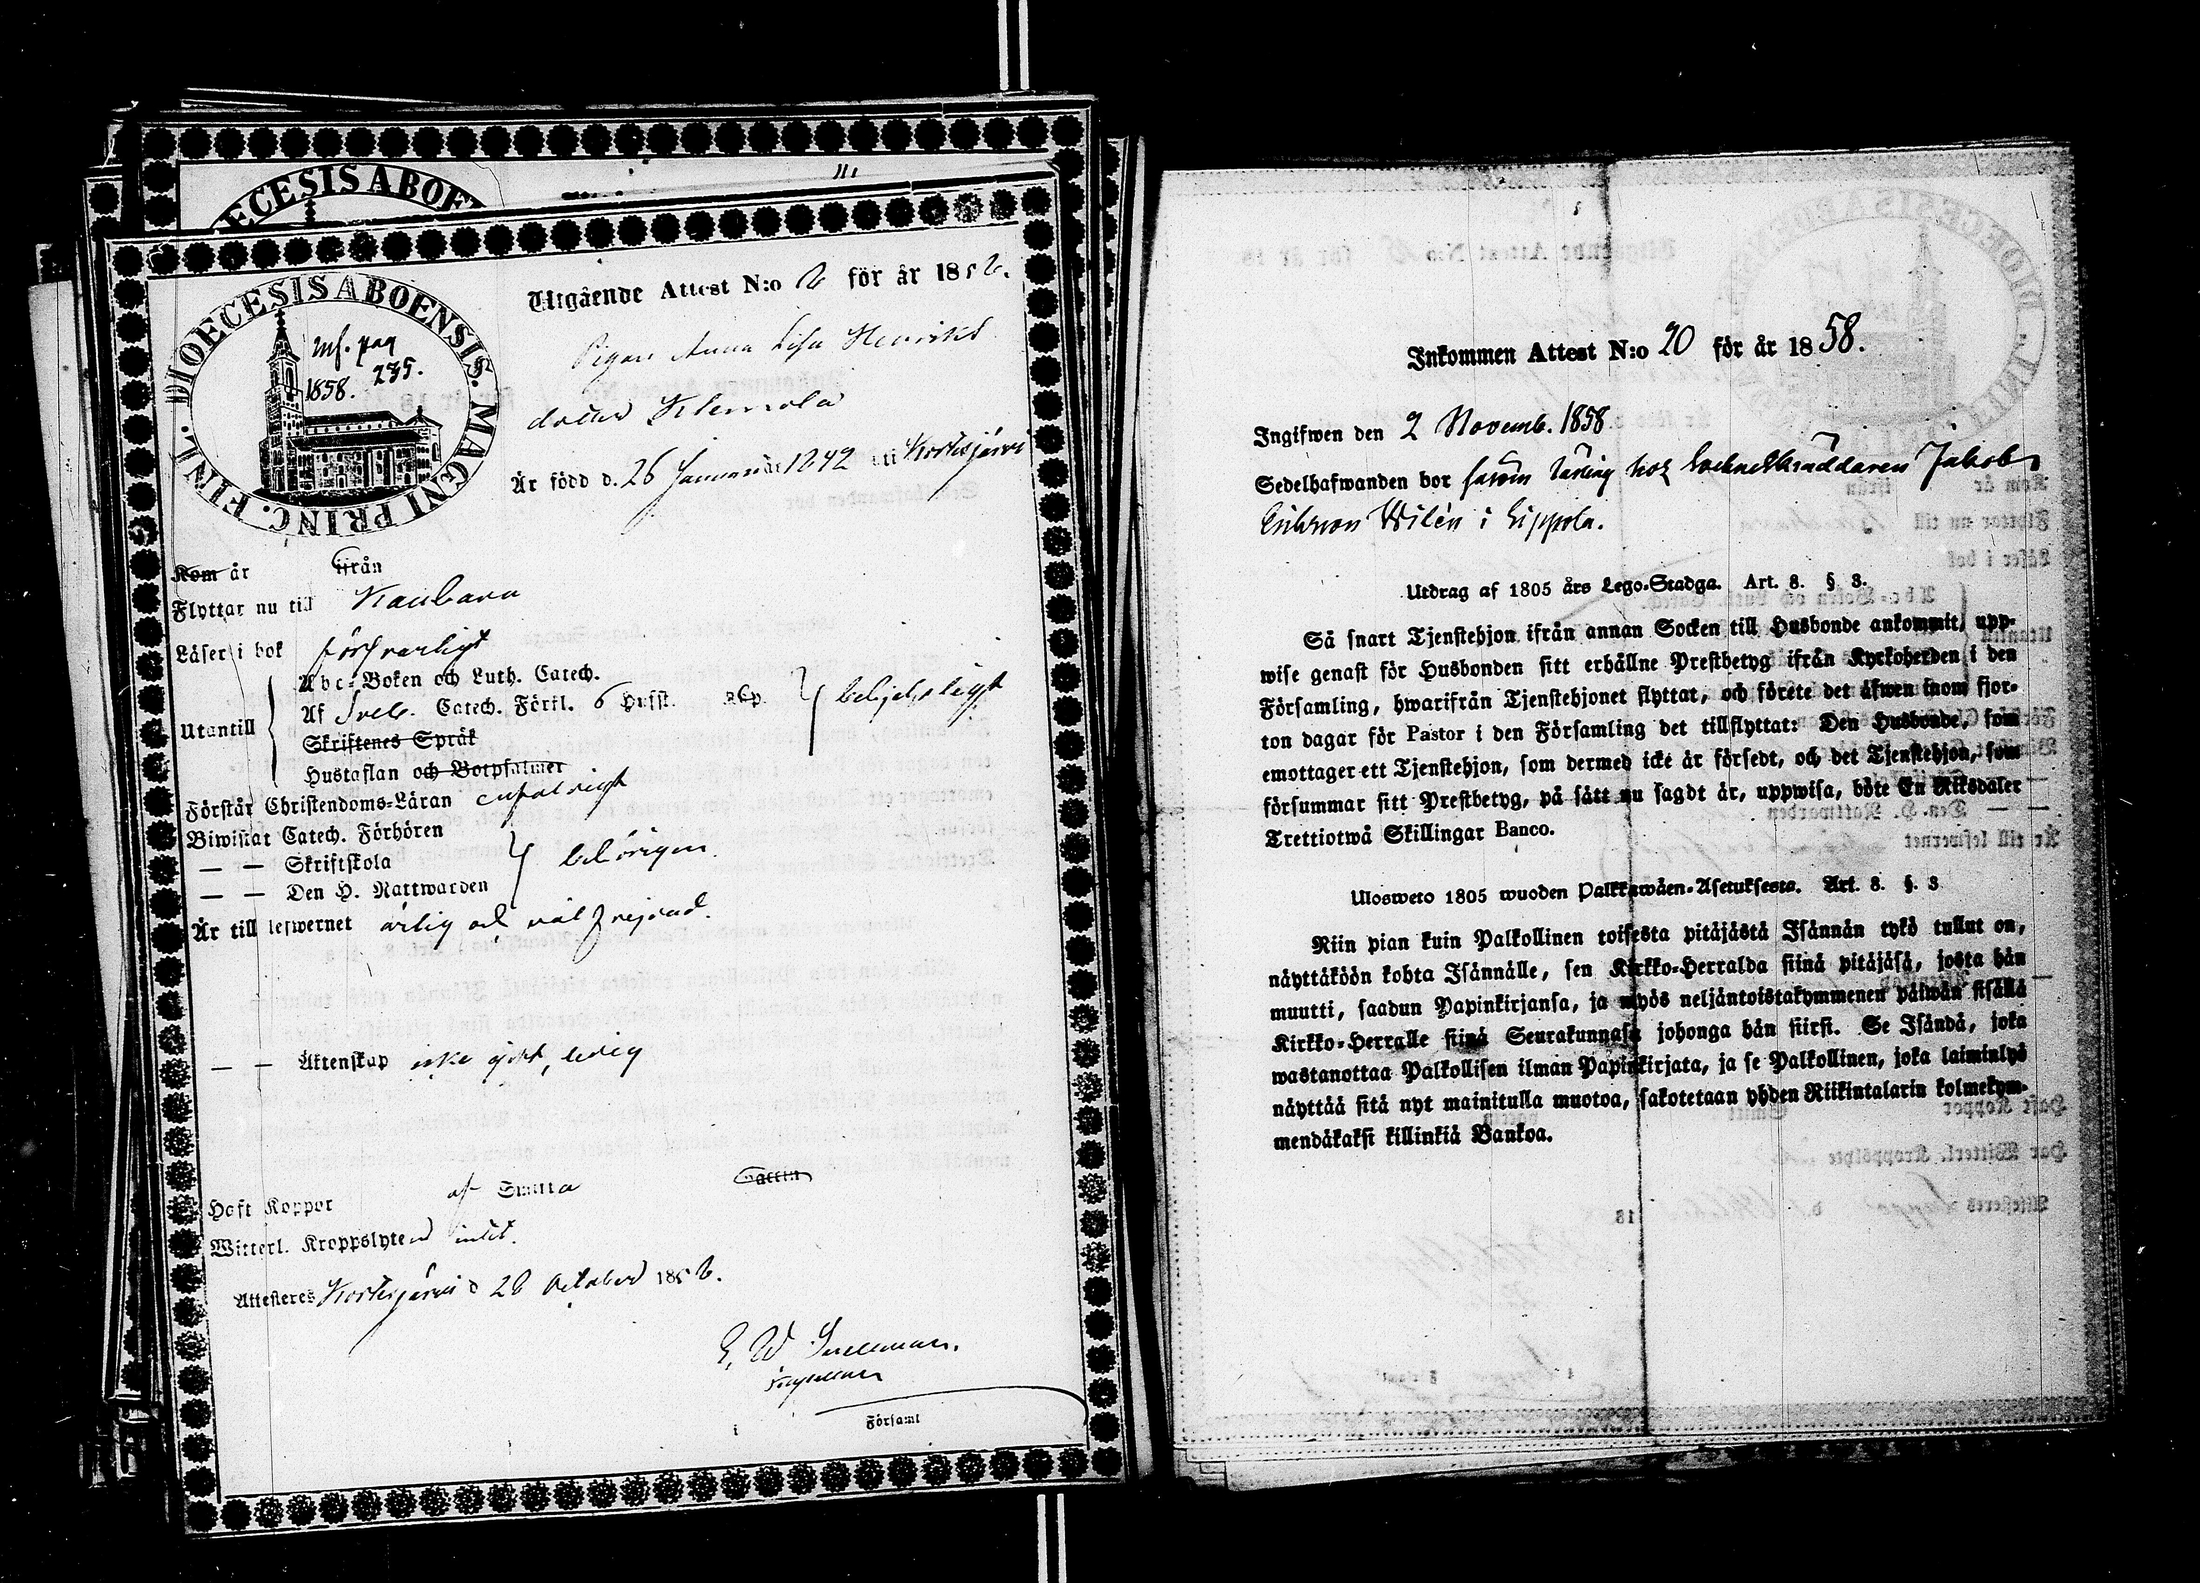 DIOECESIS ABOEN
DIOECESIS ABOENSIS. MAGNI PRINC. FINL.
Inf. pag
1858. 235.
Utgående Attest N:o för år 185
Pigan Anna Lisa Henriks
dotter Klemola
Är född d. 26 Januarii 1842 i Kortesjärvi
Kom år ifrån
Flyttar nu till Kauhava
Läser i bok försvarligt
Utantill
Abc-Boken och Luth. Catech.
Af Sveb. Catech. Förkl. 6 Hufst. Cap. behjelpligt
Skriftenes Språk
Hustaflan och Botpsalmer
Förstår Christendoms-Läran enfaldigt
Biwistat Catech. Förhören
— — Skriftskola behörigen
— — Den H. Nattwarden
Är till lefwernet ärlig och väl frejdad.
— — Äktenskap icke gift, ledig
Haft Koppor af Smitta Gattin
Witterl. Kroppslyte intet.
Attesteres Kortesjärvi d October 185
E. W. Snellman.
Kapellan
Församl
Inkommen Attest N:o 20 för år 1858.
Ingifwen den 2 Novemb. 1858
Sedelhafwanden bor såsom lärling hos Sockneskräddaren Jakob
Eriksson Wilén i Lippola.
Utdrag af 1805 års Lego-Stadga. Art. 8. § 3.
Så snart Tjenstehjon ifrån annan Socken till Husbonde ankommit, upp-
wise genast för Husbonden sitt erhållne Prestbetyg ifrån Kyrkoherden i den
Församling, hwarifrån Tjenstehjonet flyttat, och förete det äfwen inom fjor-
ton dagar för Pastor i den Församling det tillflyttat: Den Husbonde, som
emottager ett Tjenstehjon, som dermed icke är försedt, och det Tjenstehjon, som
försummar sitt Prestbetyg, på sätt nu sagdt är, uppwisa, böte En Riksdaler
Trettiotwå Skillingar Banco.
Ulosweto 1805 wuoden Palkkawäen-Asetuksesta. Art. 8. §. 3
Niin pian kuin Palkollinen toisesta pitäjästä Isännän tykö tullut on,
näyttäköön kohta Isännälle, sen Kirkko-Herralda siinä pitäjäsä, josta hän
muutti, saadun Papinkirjansa, ja myös neljäntoistakymmenen päiwän sisällä
Kirkko-Herralle siinä Seurakunnasa johonga hän siirsi. Se Isändä, joka
wastanottaa Palkollisen ilman Papinkirjata, ja se Palkollinen, joka laiminlyö
näyttää sitä nyt mainitulla muotoa, sakotetaan yhden Riikintalarin kolmekym-
mendäkaksi killinkiä Bankoa.